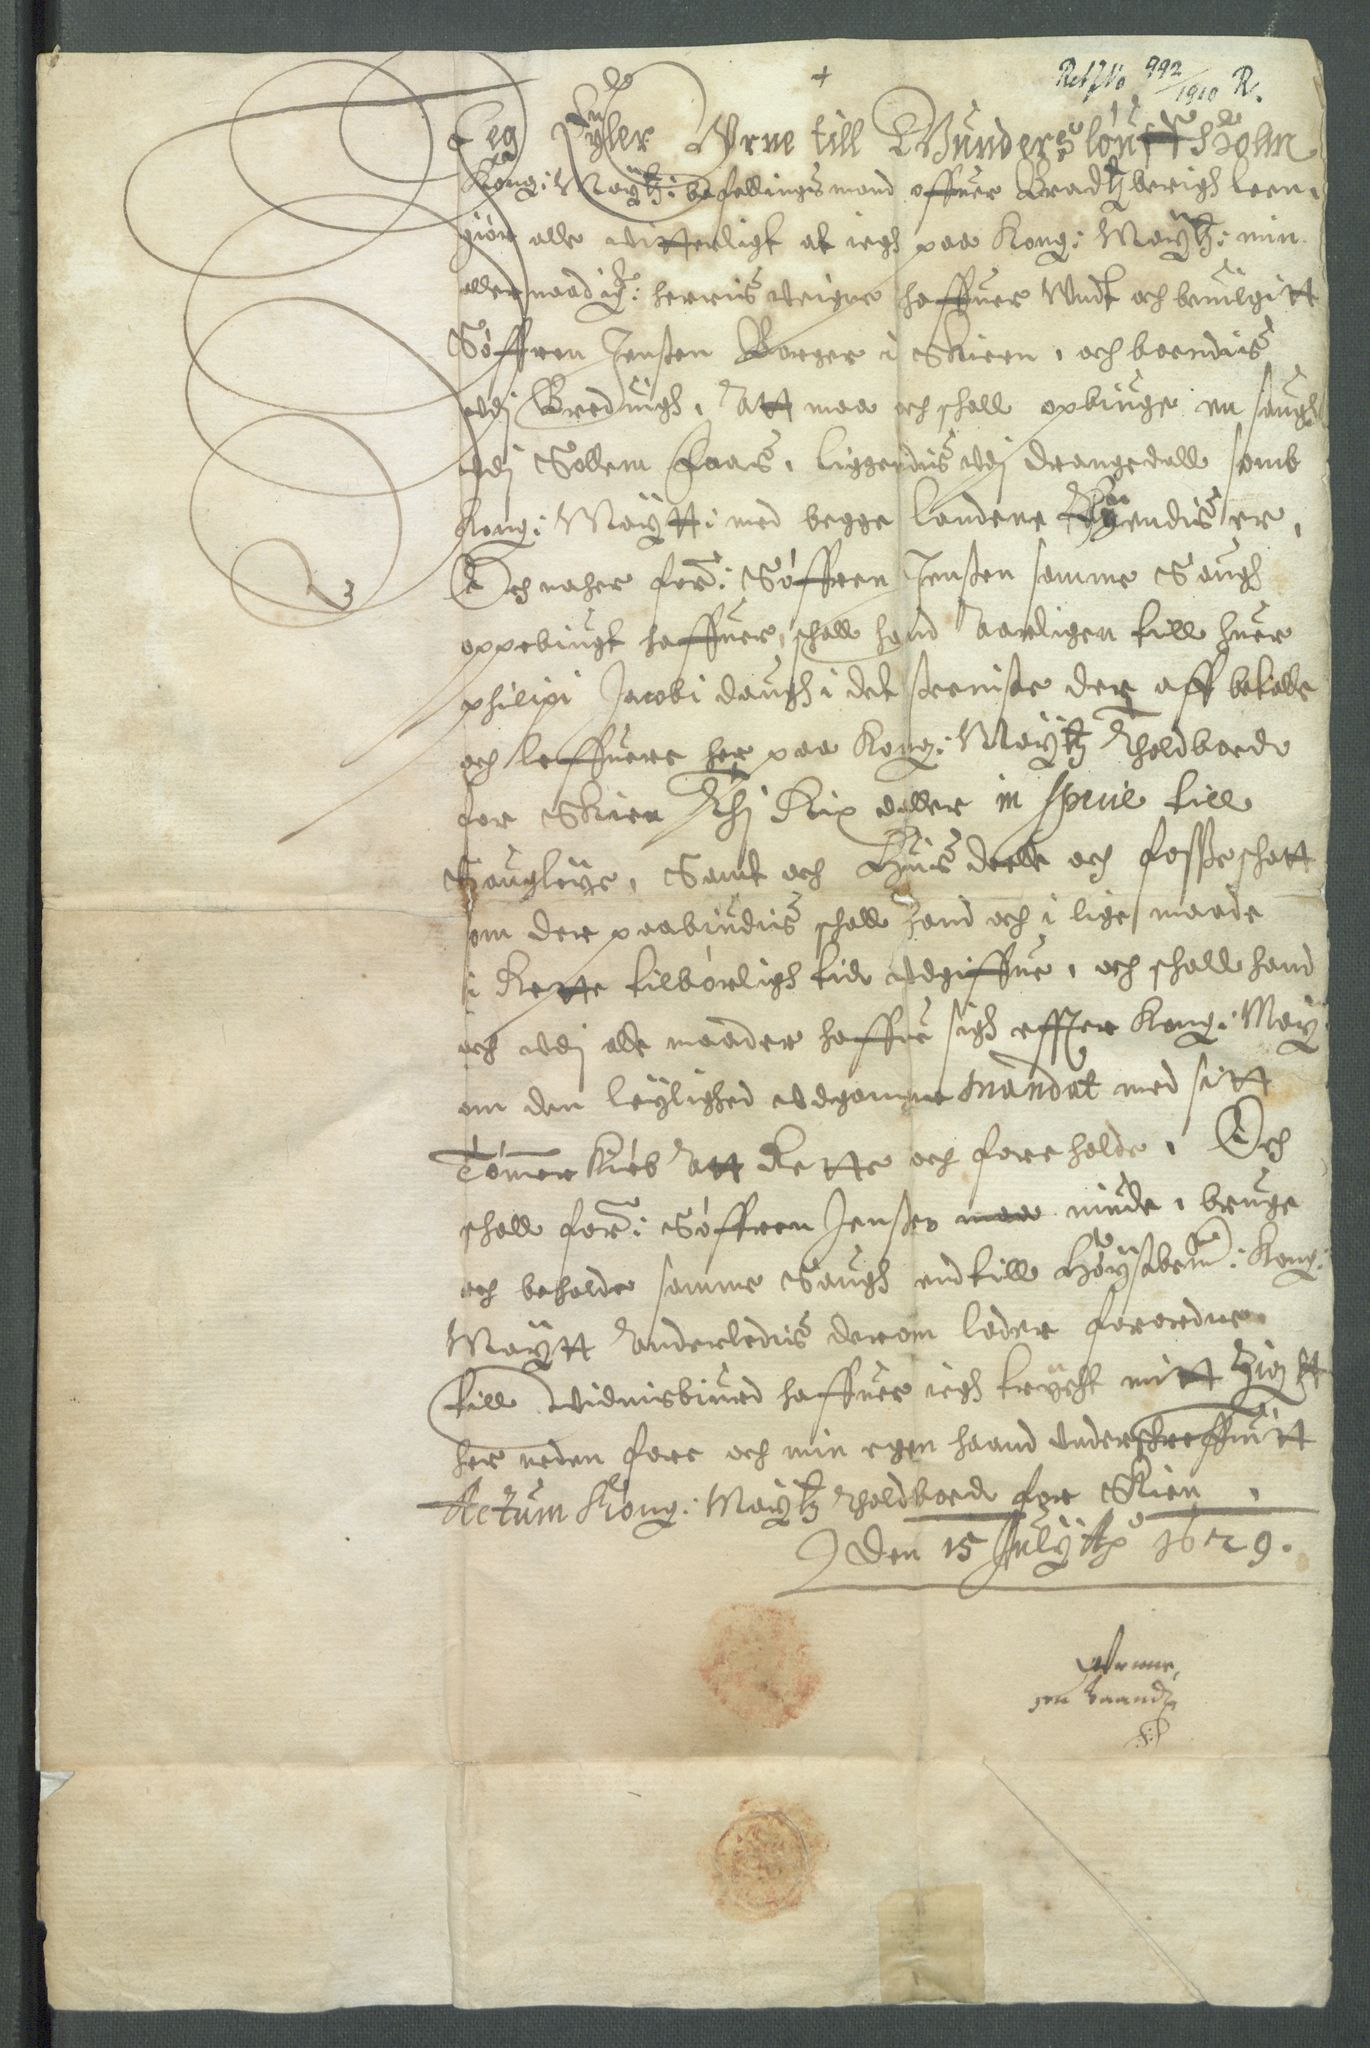 +
Ref No 992/1910 R.
Jeg Eyler Vrne till Wunderslöuffsholm
Kong: Maÿtz: befellingsmand offuer Bradtzberigh leen,
giör alle vitterligt at iegh paa Kong: Maÿtz: min
aller naadigst: herris veigne haffuer Vndt och beuilgitt
Söffren Jenssen Borger i Skien, och boendis
vdj Breduigh, Att maa och schall opbÿuge en saugh
vdj Sollem Faars, liggendis vdj drangedall somb
Kong: Maÿtt: med begge landene Eÿendis er,
Och naher forne: Söffren Jenssen samme Saugh
oppebÿugt haffuer, schall hand Aarligen till huer
philipi Jacobi daugh i det seeniste der aff betalle
och leffuere her paa Kong: Maÿtz Tholdboed
for Skien Thj Rix daller in specie till
Saugleÿe, Samt och Huis deelle och fosseschatt
som der paabÿudis schall hand och i lige maade
i Rette tilbörligh tid vdgiffue, och schall hand
och vdj alle maader haffue sigh effter Kong: Maÿ:
om den leÿlighed vdgangne Mandat med sitt
Tömmer Kiöb Att Rette och foreholde, Och
schall forne: Söffren Jenssen maa niude, bruge
och beholde samme Saugh indtill Höÿstbemte: Kong:
Maÿtt Anderledis derom lader forordne
till Vidnisbiurd haffuer iegh trÿcht mitt Zignett
her neden fore och min egen haand vnderschreffuitt
Actum Kong: Maÿtz Tholdboed for Skien,
Den 15 Julÿ Ao 1629.
E Vrne
egen haand